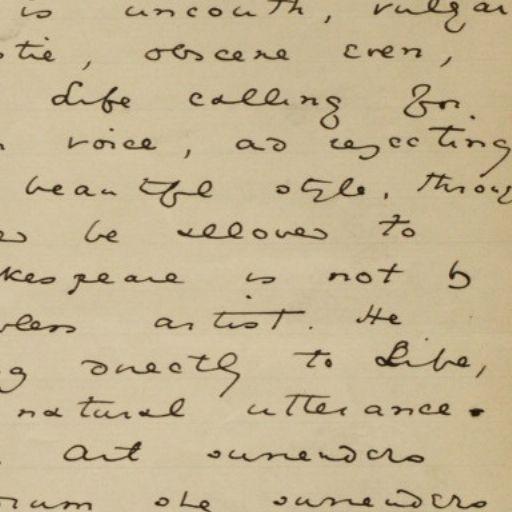 is uncouth, vulgar
tic, obscene even,
Life calling for
voice, and rejecting
beautiful style, through
be allowed to
kespeare is not b
less artist. He
g directly to Life,
natural utterance.
Art surrenders
ium she surrenders